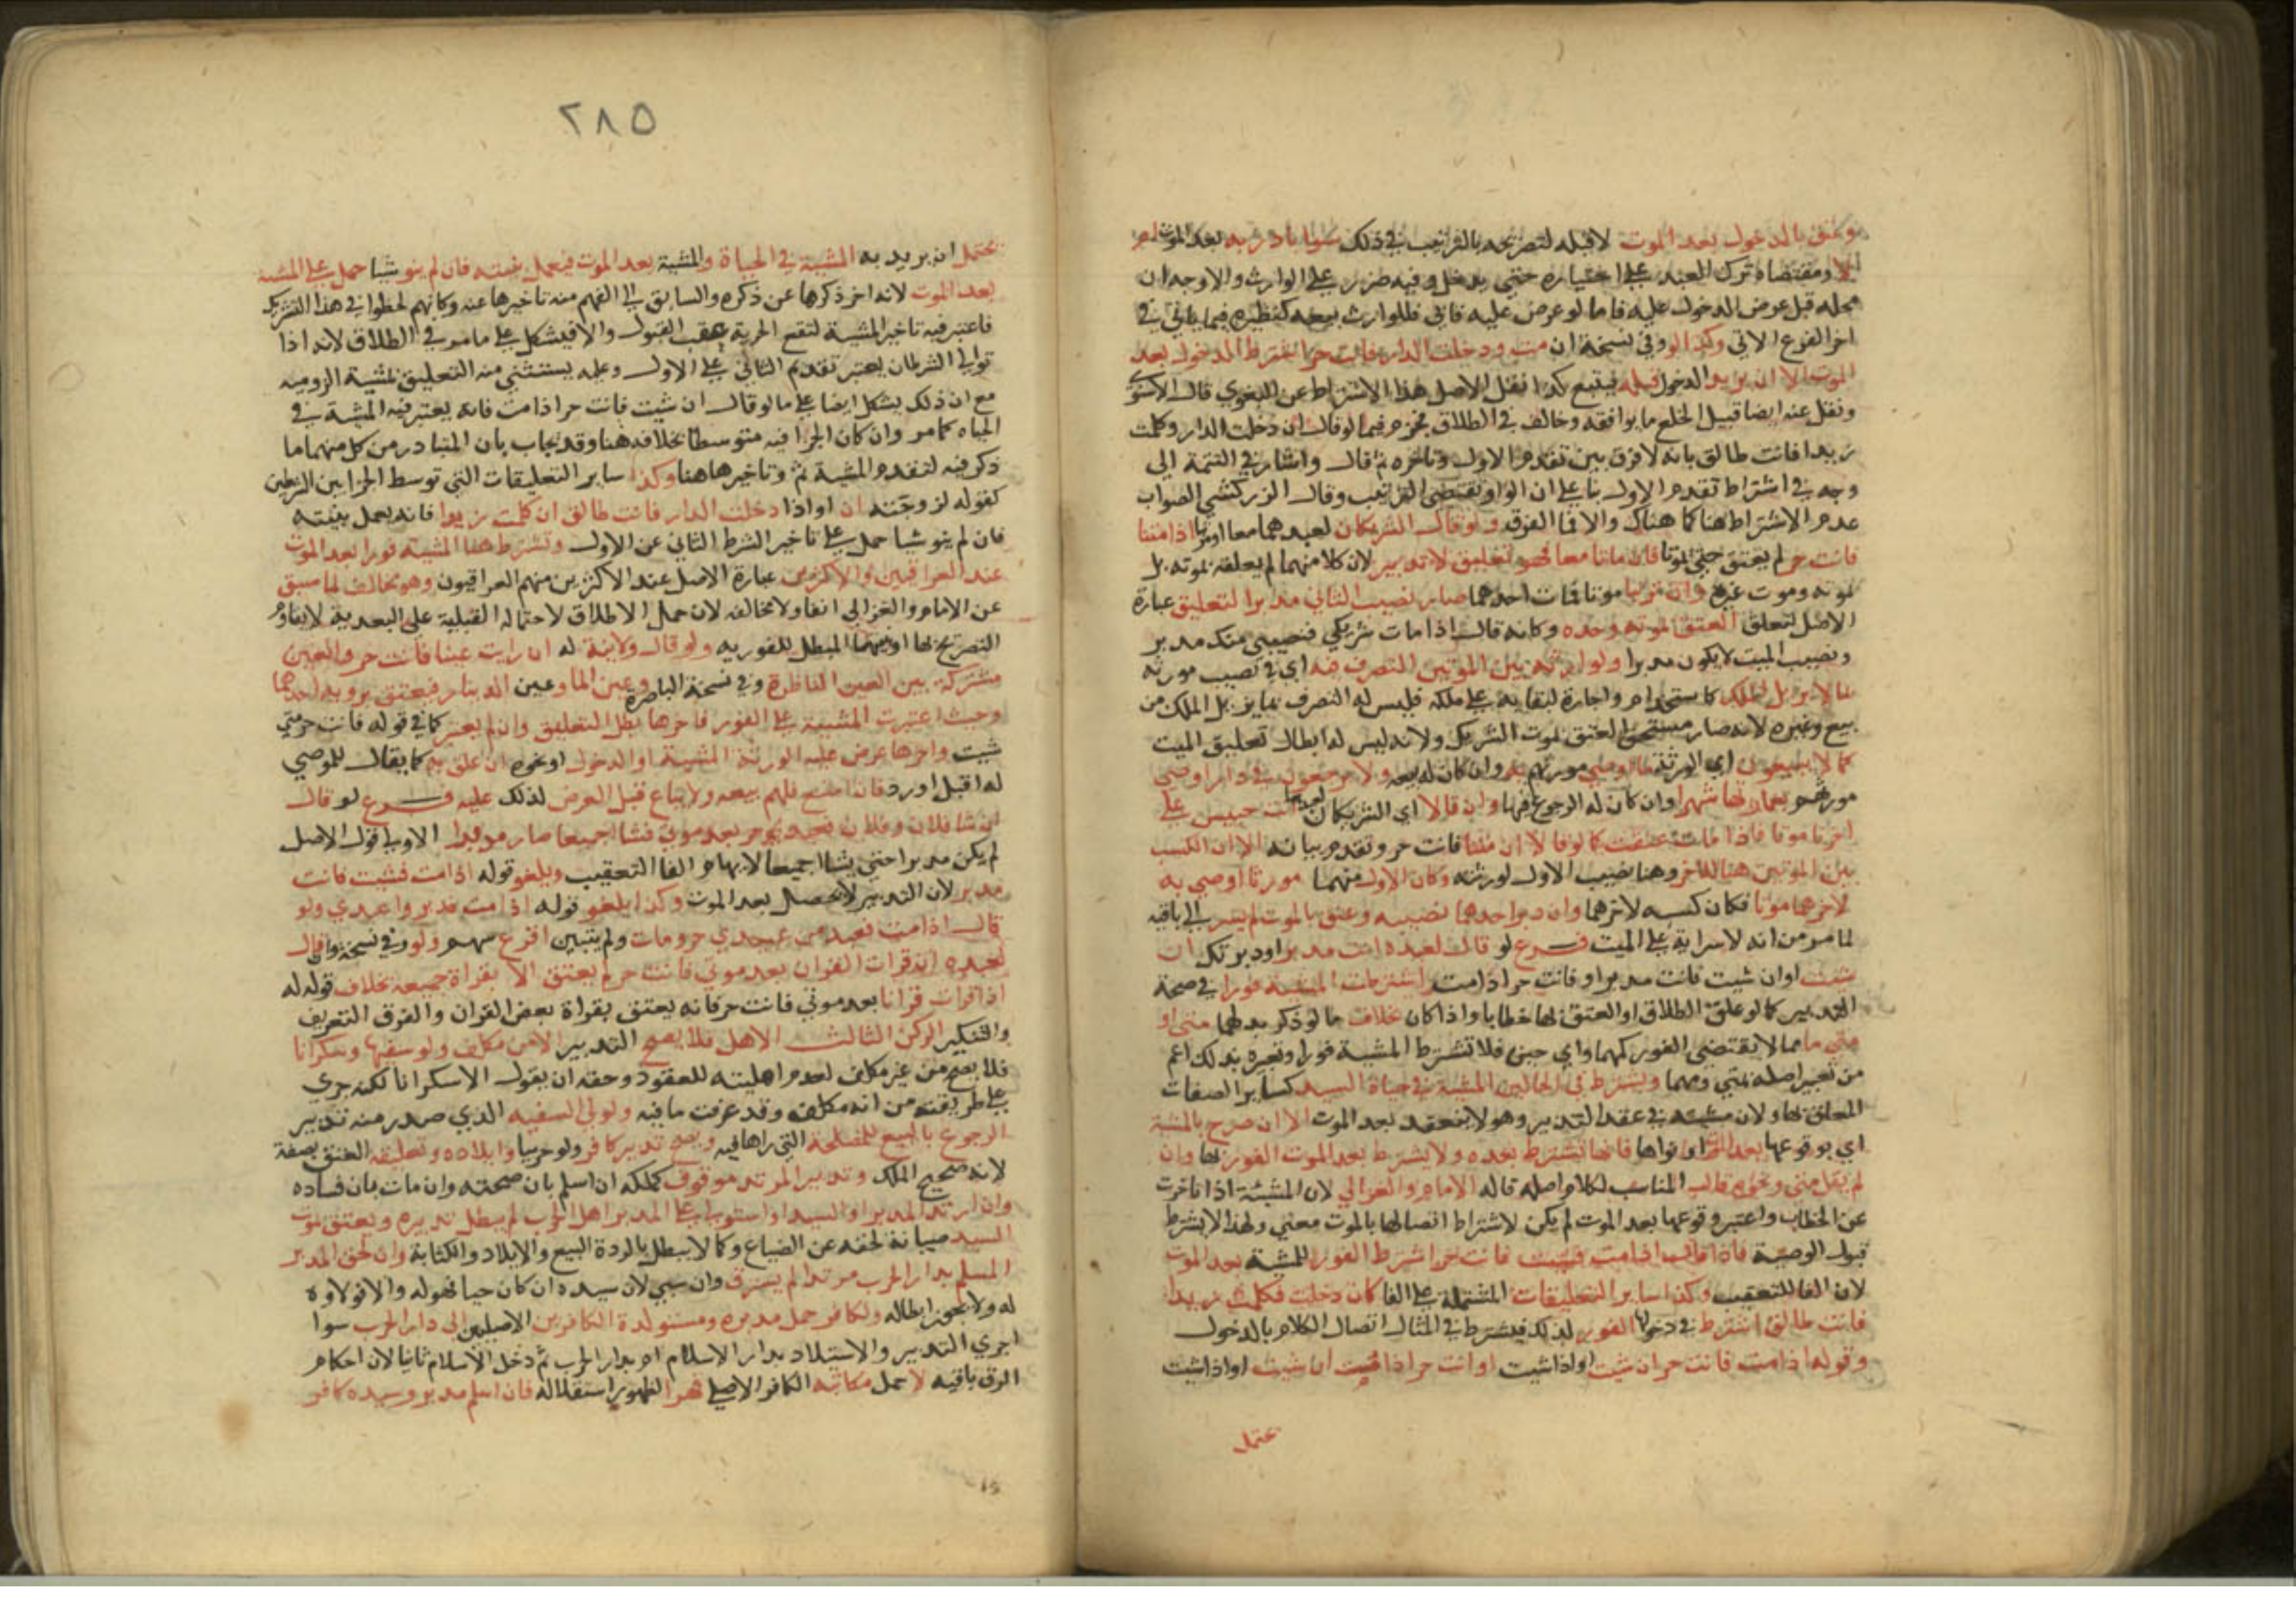 وعتق بالدخول بعد الموت لا قبله لتصريحه بالترتيب في ذلك سوا بادر به بعد الموت ام
لا ومقتضاه ترك العبد على اختياره حتى يدخل وفيه ضرر على الوارث والاوجه ان
محله قبل عرض الدخول عليه فاما لو عرض عليه فابى فللوارث بيعه كنظيره فيما ياتي في
اخر الفرع الاتي وكذا لو وفي نسخة ان مت ودخلت الدار فانت حر اشترط الدخول بعد
الموت الا ان يريد الدخول قبله فيتبع كذا نقل الاصل هذا الاشتراط عن البغوي قال الاسنوي
ونقل عنه ايضا قبيل الخلع ما يوافقه وخالف في الطلاق فجزم فيما لو قال ان دخلت الدار وكلمت
زيدا فانت طالق بانه لا فرق بين تقدم الاول وتاخره ثم قال واشار في التتمة الى
وجه في اشتراط تقدم الاول بنا على ان الواو تقتضي الترتيب وقال الزركشي الصواب
عدم الاشتراط هنا كما هناك والا فما الفرق ولو قال الشريكان لعبدهما معا او مرتبا اذا متنا
فانت حر لم يعتق حتى يموتا فان ماتا معا فهو تعليق لا تدبير لان كلا منهما لم يعلقه بموته بل
بموته وموت غيره وان ترتبا موتا فمات احدهما صار نصيب الثاني مدبرا لتعليق عبارة
الاصل لتعلق العتق بموته وحده وكانه قال اذا مات شريكي فنصيبي منك مدبر
ونصيب الميت لا يكون مدبرا ولوارثه بين الموتين التصرف فيه اي في نصيب مورثه
بما لا يزيل الملك كاستخدام واجارة لبقائه على ملكه فليس له التصرف بما يزيل الملك من
بيع وغيره لانه صار مستحق العتق بموت الشريك ولانه ليس له ابطال تعليق الميت
كما لا يبيعون اي الورثة ما اوصى مورثهم به وان كان له بيعه ولا يرجعون في دار اوصى
مورثهم بعاريتها شهرا وان كان له الرجوع فيها وان قالا اي الشريكان لعبدهما انت حبيس على
اخرنا موتا فاذا مات عتقت كما لو قالا ان متنا فانت حر وتقدم بيانه الا ان الكسب
بين الموتين هنا للاخر وهنا نصيب الاول لورثته وكان الاول منهما موتا اوصى به
لاخرهما موتا فكان كسبه لاخرهما وان دبر احدهما نصيبه وعتق بالموت لم يسر الى باقيه
لما مر من انه لا سراية على الميت فرع لو قال لعبده انت مدبر او دبرتك ان
شئت او ان شيت فانت مدبر او فانت حر اذا مت اشترطت المشية فورا في صحة
التدبير كما لو علق الطلاق او العتق بها خطابا واذا كان بخلاف ما لو ذكر بدلها متى او
متى ما مما لا يقتضي الفور كمهما واي حين فلا تشترط المشية فورا وتعبيره بذلك اعم
من تعبير اصله بمتى ومهما ويشترط في الحالين المشية في حياة السيد كساير الصفات
المعلق بها ولان مشيته في عقد التدبير وهو لا ينعقد بعد الموت الا ان صرح بالمشية
اي بوقوعها بعد الموت او نواها فانها تشترط بعده ولا يشترط بعد الموت الفور بها وان
لم يقل متى ونحوه قال المناسب لكلام اصله قاله الامام والغزالي لان المشيئة اذا تاخرت
عن الخطاب واعتبر وقوعها بعد الموت لم يكن لاشتراط اتصالها بالموت معنى ولهذا لا يشترط
قبول الوصية فاذا قال اذا مت فشيت فانت حر اشترط الفور للمشية بعد الموت
لان الفا للتعقيب وكذا ساير التعليقات المشتملة على الفا كان دخلت فكلمت زيدا
فانت طالق اشترط في دخولها الفور لذلك فيشترط في المثال اتصال الكلام بالدخول
وقوله اذا مت فانت حر ان شيت او اذا شيت او انت حر اذا مت ان شيت او اذا شيت
يحتمل
٢٨٥
يحتمل ان يريد به المشية في الحياة والمشية بعد الموت فيعمل بنيته فان لم ينو شيا حمل على المشية
بعد الموت لانه اخر ذكرها عن ذكره والسابق الى الفهم منه تاخيرها عنه وكانهم لحظوا في هذا التشريك
فاعتبر فيه تاخير المشية لتقع الحرية عقب القبول والا فيشكل على ما مر في الطلاق لانه اذا
توالى الشرطان يعتبر تقدم الثاني على الاول وعليه يستثنى منه التعليق بمشية الزوجية
مع ان ذلك يشكل ايضا على ما لو قال ان شيت فانت حر اذا مت فانه يعتبر فيه المشية في
الحياه كما مر وان كان الجزا فيه متوسطا بخلافه هنا وقد يجاب بان المتبادر من كل منهما ما
ذكر فيه لتقدم المشية ثم وتاخيرها هنا وكذا ساير التعليقات التي توسط الجزا بين الشرطين
كقوله لزوجته ان او اذا دخلت الدار فانت طالق ان كلمت زيدا فانه يعمل بنيته
فان لم ينو شيا حمل على تاخير الشرط الثاني عن الاول وتشترط هنا المشية فورا بعد الموت
عند العراقيين والاكثرين عبارة الاصل عند الاكثرين منهم العراقيون وهو مخالف لما سبق
عن الامام والغزالي انفا ولا مخالفه لان حمل الاطلاق لاحتماله القبلية على البعدية لا يقاوم
التصريح بها او نيتها المبطل للفورية ولو قال ولا نية له ان رايت عينا فانت حر والعين
مشتركة بين العين الناظرة وفي نسخة الباصرة وعين الما وعين الدينار فيعتق برويه احدهما
وحيث اعتبرت المشية على الفور فاخرها بطل التعليق وان لم يعتبر كما في قوله فانت حر متى
شيت واخرها عرض عليه الورثة المشية او الدخول او نحوه ان علق به كما يقال للموصى
له اقبل او رد فان امتنع فلهم بيعه ولا يباع قبل العرض لذلك عليه فرع لو قال
ان شا فلان وفلان فعبدي حر بعد موتي فشاا جميعا صار مدبرا الاولى قول الاصل
لم يكن مدبرا حتى يشاا جميعا لايهام الفا التعقيب ويلغو قوله اذا مت فشيت فانت
مدبر لان التدبير لا يحصل بعد الموت وكذا يلغو قوله اذا مت فدبروا عبدي ولو
قال اذا مت فعبد من عبيدي حر ومات ولم يتبين اقرع بينهم ولو وفي نسخة وان قال
لعبده ان قرات القران بعد موتي فانت حر لم يعتق الا بقراة جميعه بخلاف قوله له
اذا قرات قرانا بعد موتي فانت حر فانه يعتق بقراة بعض القران والفرق التعريف
والتنكير الركن الثالث الاهل فلا يصح التدبير الا من مكلف ولو سفيها وسكرانا
فلا يصح من غير مكلف لعدم اهليته للعقود وحقه ان يقول الا سكرانا لكنه جرى
على طريقته من انه مكلف وقد عرفت ما فيه ولولي السفيه الذي صدر منه تدبير
الرجوع بالبيع للمصلحة التي راها فيه ويصح تدبير كافر ولو حربيا وايلاده وتعليقه العتق بصفة
لانه صحيح الملك وتدبير المرتد موقوف كملكه ان اسلم بان صحته وان مات بان فساده
وان ارتد المدبر او السيد او استولى على المدبر اهل الحرب لم يبطل تدبيره ويعتق بموت
السيد صيانة لحقه عن الضياع وكما لا يبطل بالردة البيع والايلاد والكتابة وان لحق المدبر
المسلم بدار الحرب مرتدا لم يسترق وان سبي لان سيده ان كان حيا فهو له والا فولاوه
له ولا يجوز ابطاله ولكافر حمل مدبره ومستولدة الكافرين الاصليين الى دار الحرب سوا
اجرى التدبير والاستيلاد بدار الاسلام ام بدار الحرب ثم دخل الاسلام ثانيا لان احكام
الرق باقيه لا حمل مكاتبه الكافر الاصلي قهرا لظهور استقلاله فان اسلم مدبر وسيده كافر